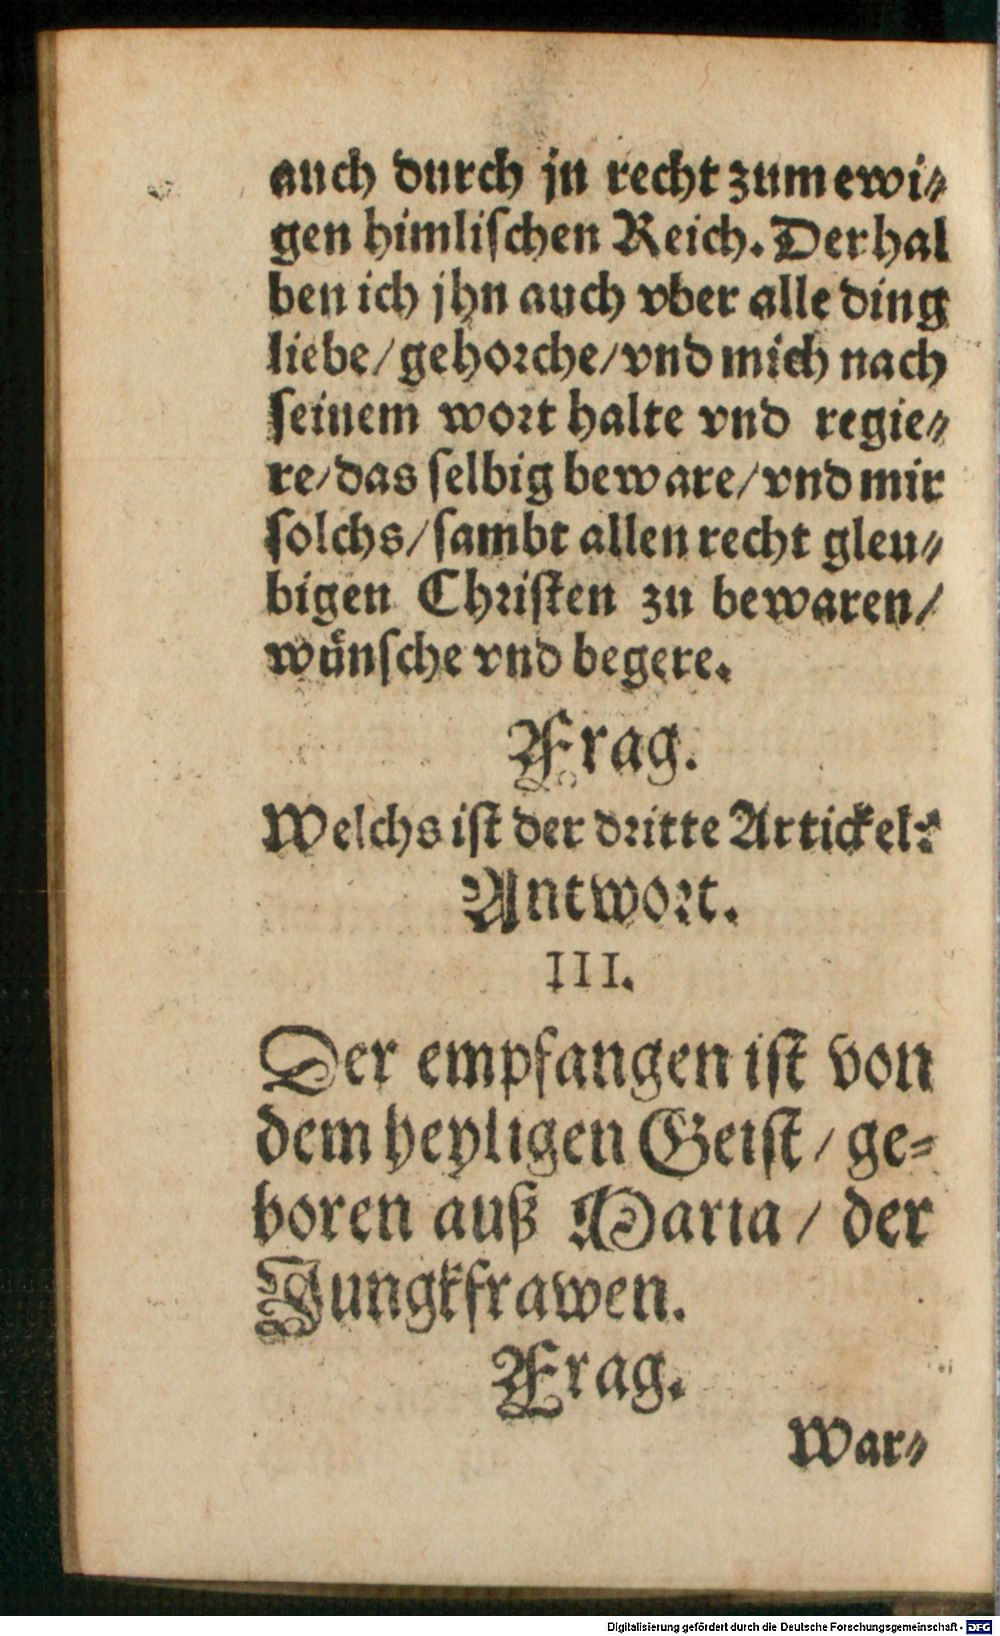 auch durch jn recht zum ewi⸗
gen himlischen Reich. Derhal
ben ich jhn auch vber alle ding
liebe/ gehorche/ vnd mich nach
seinem wort halte vnd regie⸗
re/ das selbig beware/ vnd mir
solchs/ sambt allen recht gleu⸗
bigen Christen zu bewaren/
wünsche vnd begere.
Frag.
Welchs ist der dritte Artickel?
Antwort.
III.
Der empfangen ist von
dem heyligen Geist/ ge⸗
boren auß Maria/ der
Jungkfrawen.
Frag.
War⸗
Digitalisierung gefördert durch die Deutsche Forschungsgemeinschaft - DFG